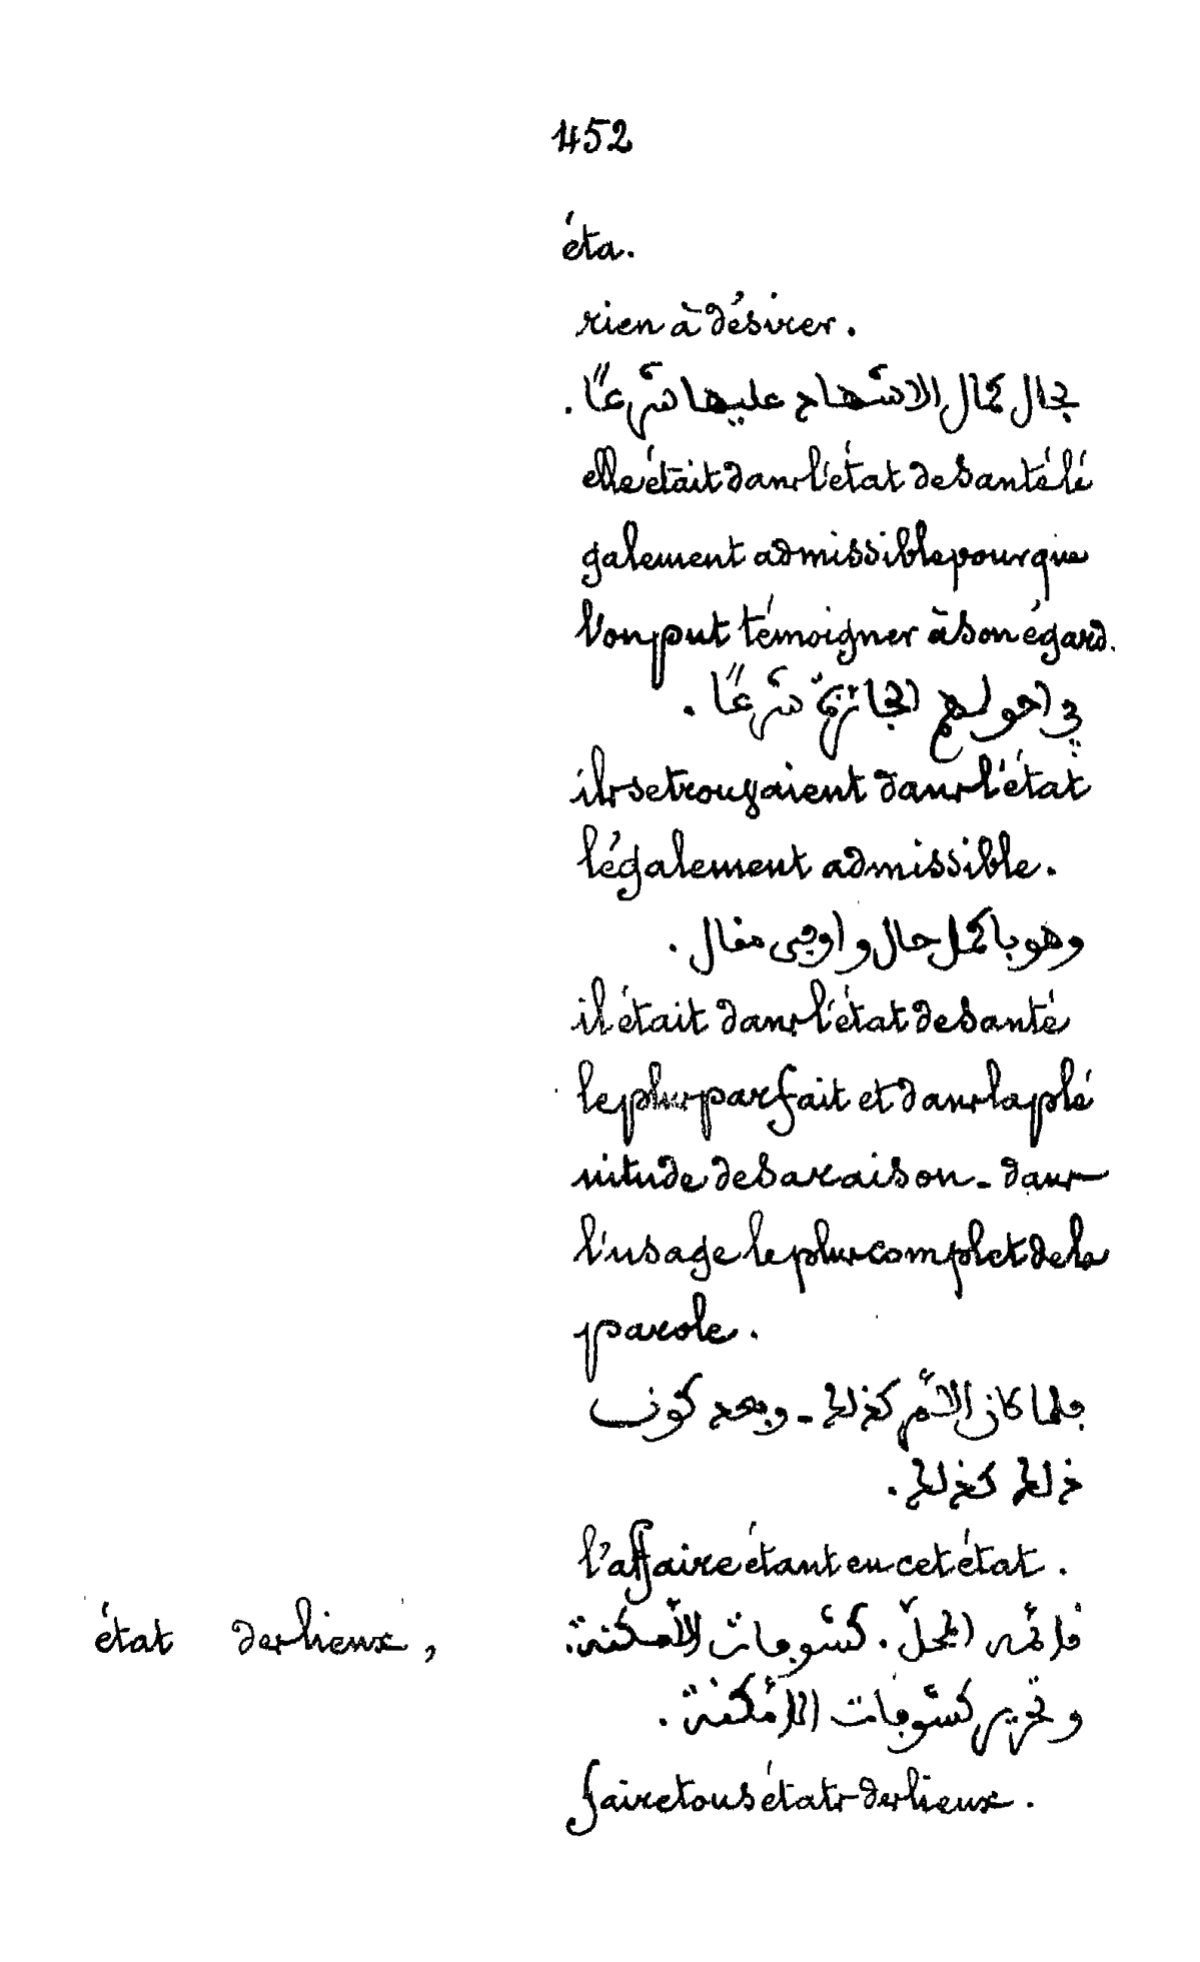 452
éta.
rien à désirer.
بحال كمال الاشهاد عليها شرعًا.
elle était dans l'état de santé lé
galement admissible pour que
l'on put témoigner à son égard.
في احولهم الجائزة شرعًا.
ils se trouvaient dans l'état
légalement admissible.
وهو باكمل حال واوفى مقال.
il était dans l'état de santé
le plus parfait et dans la plé
nitude de sa raison - dans
l'usage le plus complet de la
parole.
فلما كان الأمر كذلك - وبعد كون
ذلك كذلك.
l'affaire étant en cet état.
état des lieux, المحلّ. كشوفات الأمكنة.
وتحرير كشوفات الأمكنة.
faire tous états des lieux.